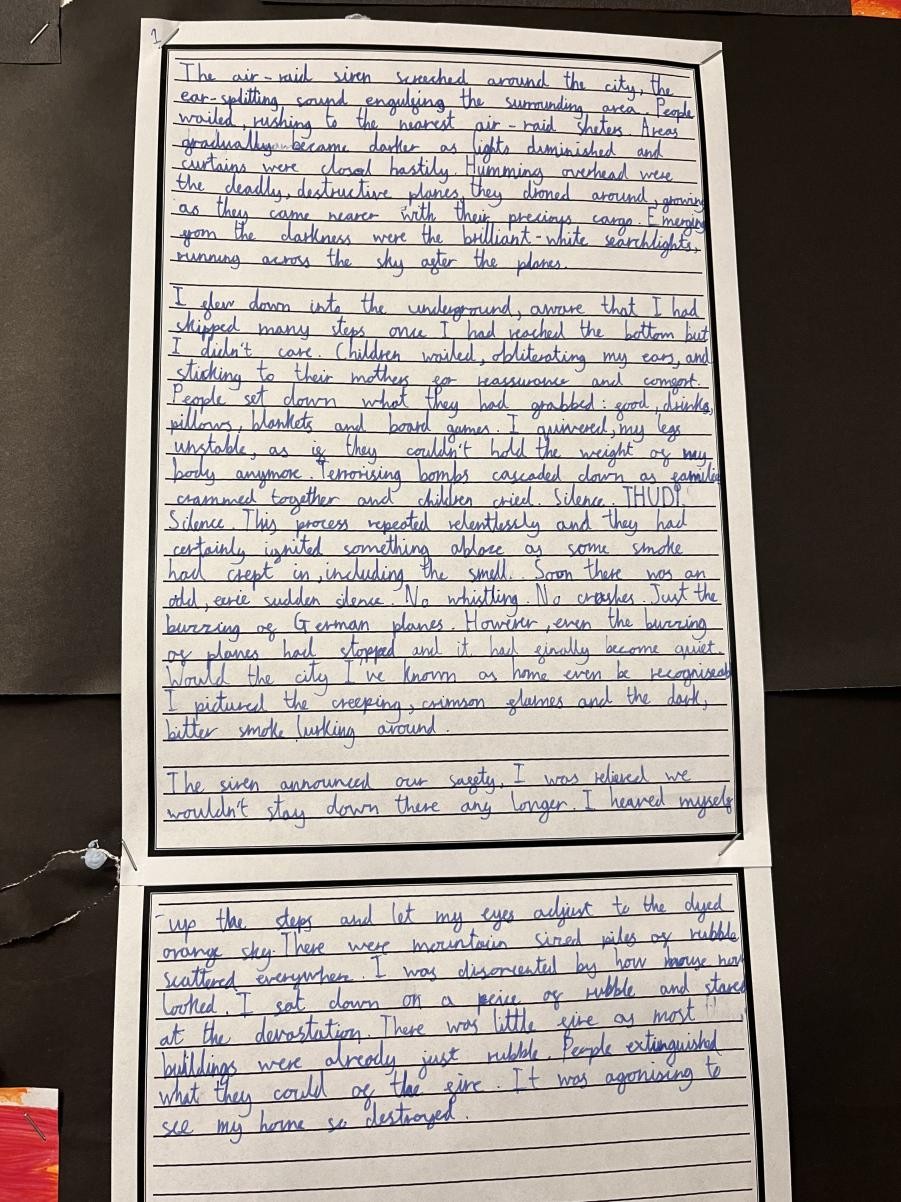 1
The air-raid siren screeched around the city, the
ear-splitting sound engulfing the surrounding area. People
wailed, rushing to the nearest air-raid shelters. Areas
gradually became darker as lights diminished and
curtains were closed hastily. Humming overhead were
the deadly, destructive planes, they droned around, growing
as they came nearer with their precious cargo. Emerging
from the darkness were the brilliant-white searchlights,
running across the sky after the planes.
I flew down into the underground, aware that I had
skipped many steps once I had reached the bottom but
I didn't care. Children wailed, obliterating my ears, and
sticking to their mothers for reassurance and comfort.
People set down what they had grabbed: food, drinks,
pillows, blankets and board games. I quivered, my legs
unstable, as if they couldn't hold the weight of my
body anymore. Terrorising bombs cascaded down as families
crammed together and children cried. Silence. THUD!
Silence. This process repeated relentlessly and they had
certainly ignited something ablaze as some smoke
had crept in, including the smell. Soon there was an
odd, eerie sudden silence. No whistling. No crashes. Just the
buzzing of German planes. However, even the buzzing
of planes had stopped and it had finally become quiet.
Would the city I've known as home even be
I pictured the creeping, crimson flames and the dark,
bitter smoke lurking around.
The siren announced our safety, I was relieved we
wouldn't stay down there any longer. I heaved myself
up the steps and let my eyes adjust to the dyed
orange sky. There were mountain sized piles of rubble
scattered everywhere. I was disoriented by how
looked. I sat down on a peice of rubble and stared
at the devastation. There was little fire as most
buildings were already just rubble. People extinguished
what they could of the fire. It was agonising to
see my home so destroyed.